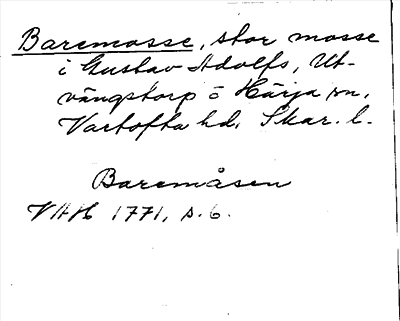 Baremosse, stor mosse
i Gustav Adolfs, Ut-
vängstorp o Härja sn,
Vartofta hd. Skar. l.
Baremåsen
VHH 1771, s. 6.